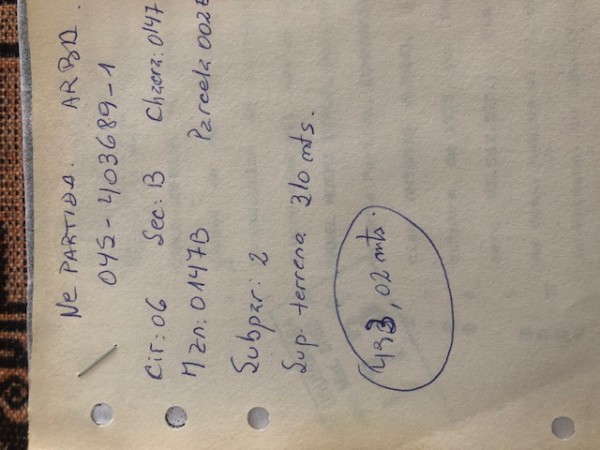 Nº PARTIDA. ARBA.
045-403689-1
Cir: 06 Sec: B Chacra: 0147
Mzn: 0147B Parcela 002B
Subpar: 2
Sup. terreno 310 mts.
493,02 mts.